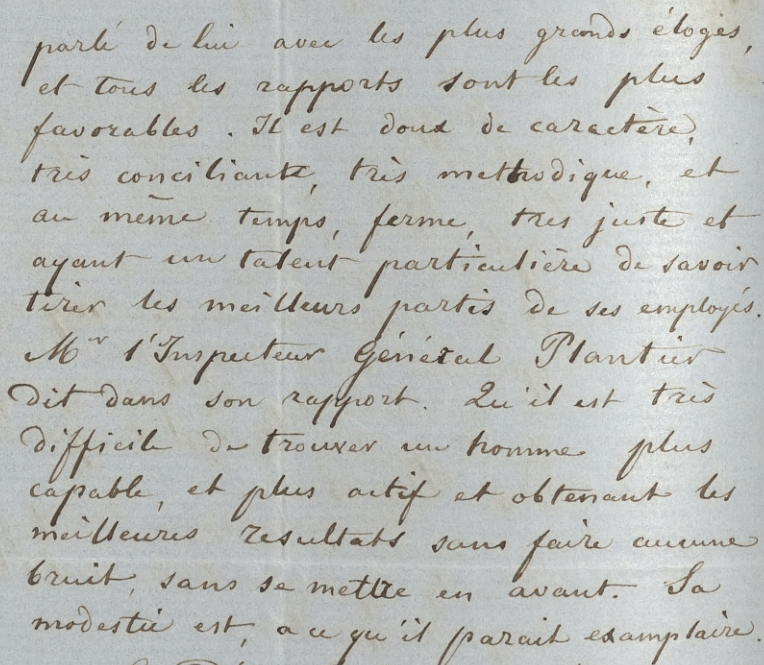 parlé de lui avec les plus grands éloges,
et tous les rapports sont les plus
favorables. Il est doux de caractère,
très conciliante, très methodique, et
au même temps, ferme, tres juste et
ayant un talent particulière de savoir
tirer les meilleurs partis de ses employés.
Mr l'Inspecteur Général Plantier
dit dans son rapport. Qu'il est très
difficile de trouver un homme plus
capable, et plus actif et obtenant les
meilleures resultats sans faire aucune
bruit, sans se mettre en avant. Sa
modestie est, a ce qu'il parait examplaire.